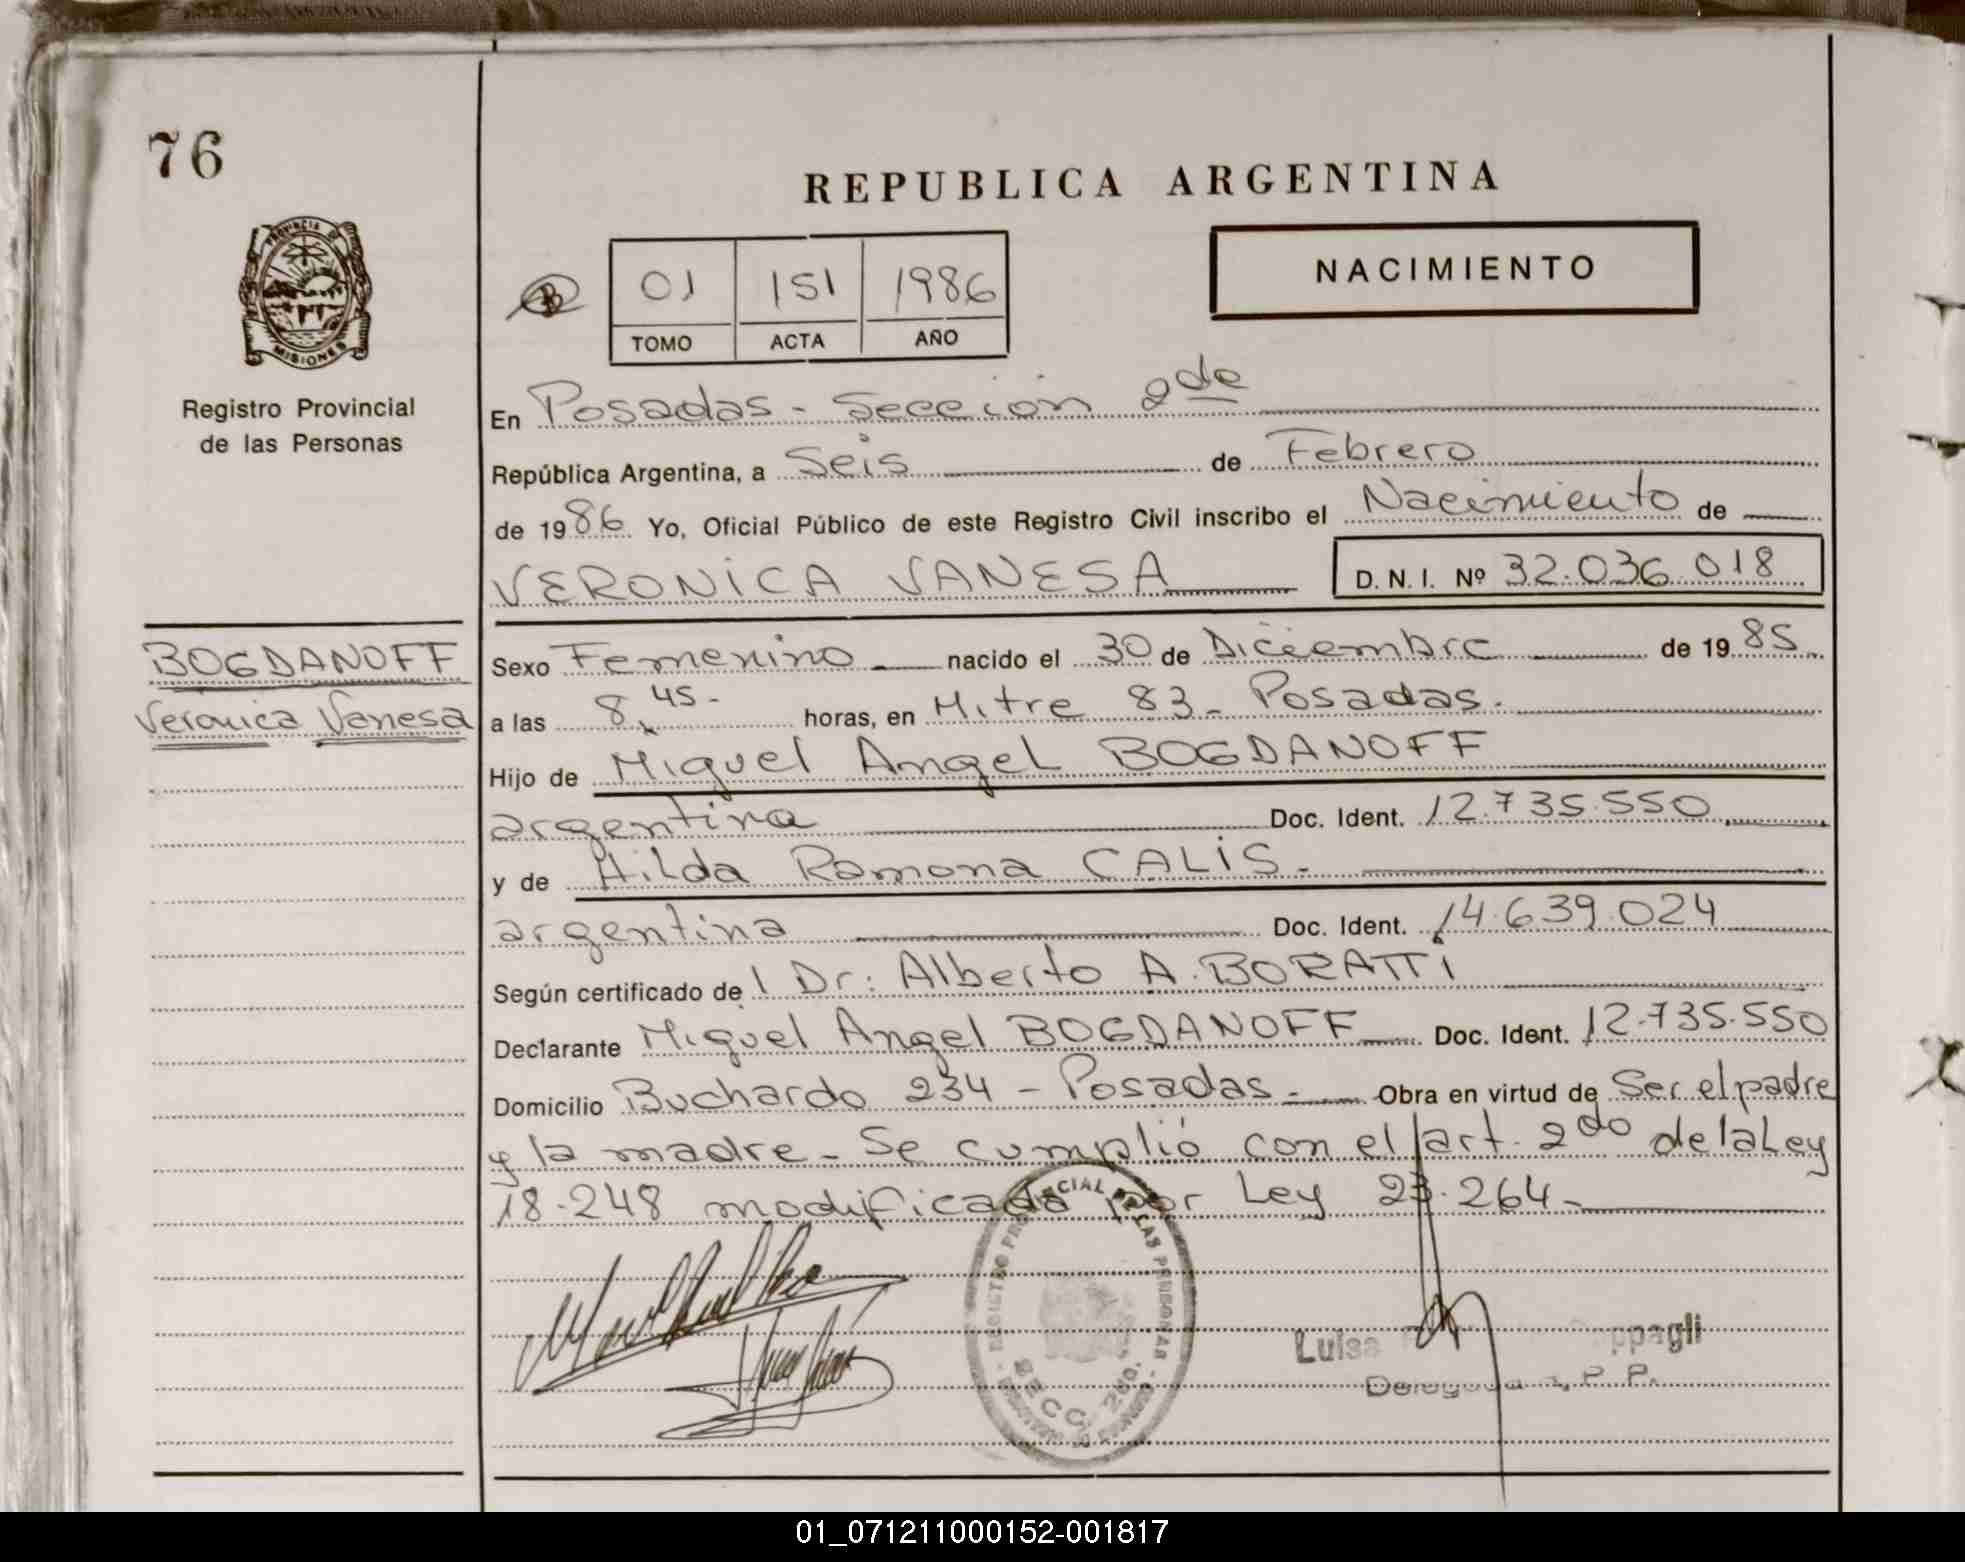 76
REPUBLICA ARGENTINA
PROVINCIA DE
MISIONES
Registro Provincial
de las Personas
01 151 1986
TOMO ACTA AÑO
NACIMIENTO
En Posadas - Sección 2da
República Argentina, a Seis de Febrero
de 1986 Yo, Oficial Público de este Registro Civil inscribo el Nacimiento de
VERONICA VANESA D. N. I. Nº 32.036.018
BOGDANOFF
Veronica Vanesa
Sexo Femenino nacido el 30 de Diciembre de 1985
a las 8,45- horas, en Mitre 83 - Posadas.
Hijo de Miguel Angel BOGDANOFF
argentina Doc. Ident. 12.735.550
y de Hilda Ramona CALIS.-
argentina Doc. Ident. 14.639.024
Según certificado del Dr: Alberto A. BORATTI
Declarante Miguel Angel BOGDANOFF Doc. Ident. 12.735.550
Domicilio Buchardo 234 - Posadas.- Obra en virtud de Ser el padre
y la madre - Se cumplió con el art. 2do de la Ley
18.248 modificada por Ley 23.264-
SECC. 2da.
Luisa
01_071211000152-001817